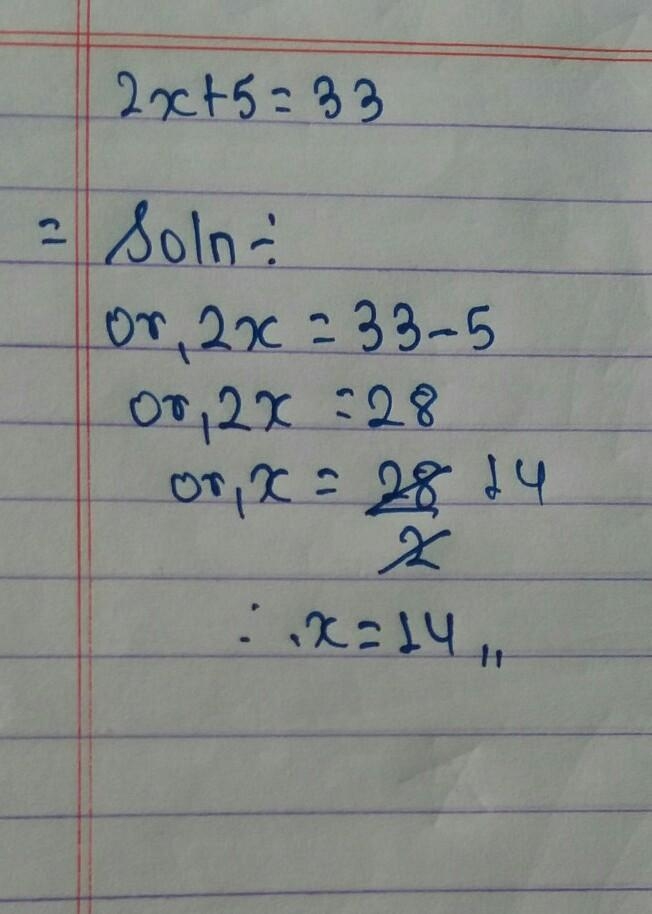 2x+5=33
= Soln÷
or, 2x = 33-5
or, 2x = 28
or, x = 28 14
2
∴ x = 14 ,,